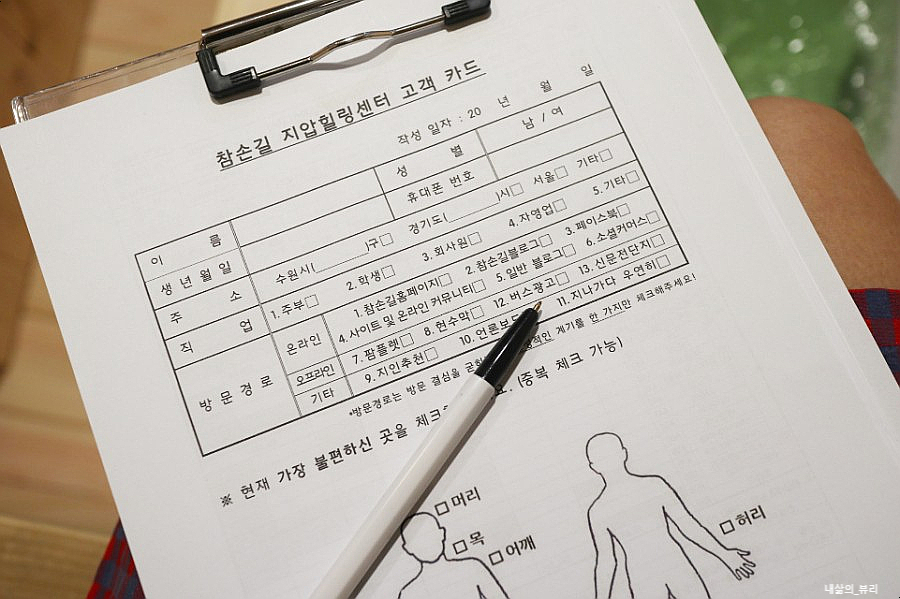 참손길 지압힐링센터 고객 카드
작성 일자 : 20 년 월 일
이 름
성 별
남 / 여
생 년 월 일
휴대폰 번호
주 소
수원시( )구□ 경기도( )시□ 서울□ 기타□
직 업
1.주부□ 2.학생□ 3.회사원□ 4.자영업□ 5.기타□
방 문 경 로
온라인
1.참손길홈페이지□ 2.참손길블로그□ 3.페이스북□
4.사이트 및 온라인 커뮤니티□ 5.일반 블로그□ 6.소셜커머스□
오프라인
7.팜플렛□ 8.현수막□ 12.버스광고□ 13.신문전단지□
기타
9.지인추천□ 10.언론보도 11.지나가다 우연히□
*방문경로는 방문 결심을 계기를 한 가지만 체크해주세요!
※ 현재 가장 불편하신 곳을 (중복 체크 가능)
□머리
□목
□어깨
□허리
내삶의_뷰리